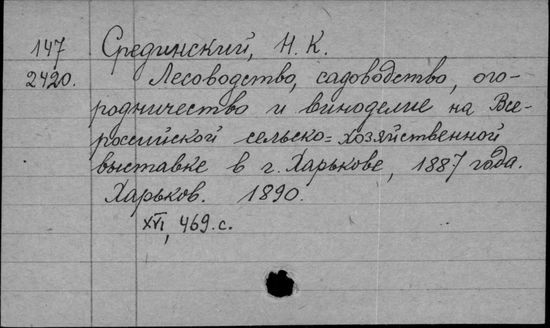 147 Срединский, Н. К.
2420. Лесоводство, садоводство, ого-
родничество и виноделие на Все-
российской сельско=хозяйственной
выставке в г. Харькове, 1887 года.
Харьков. 1890.
XVI, 469. с.